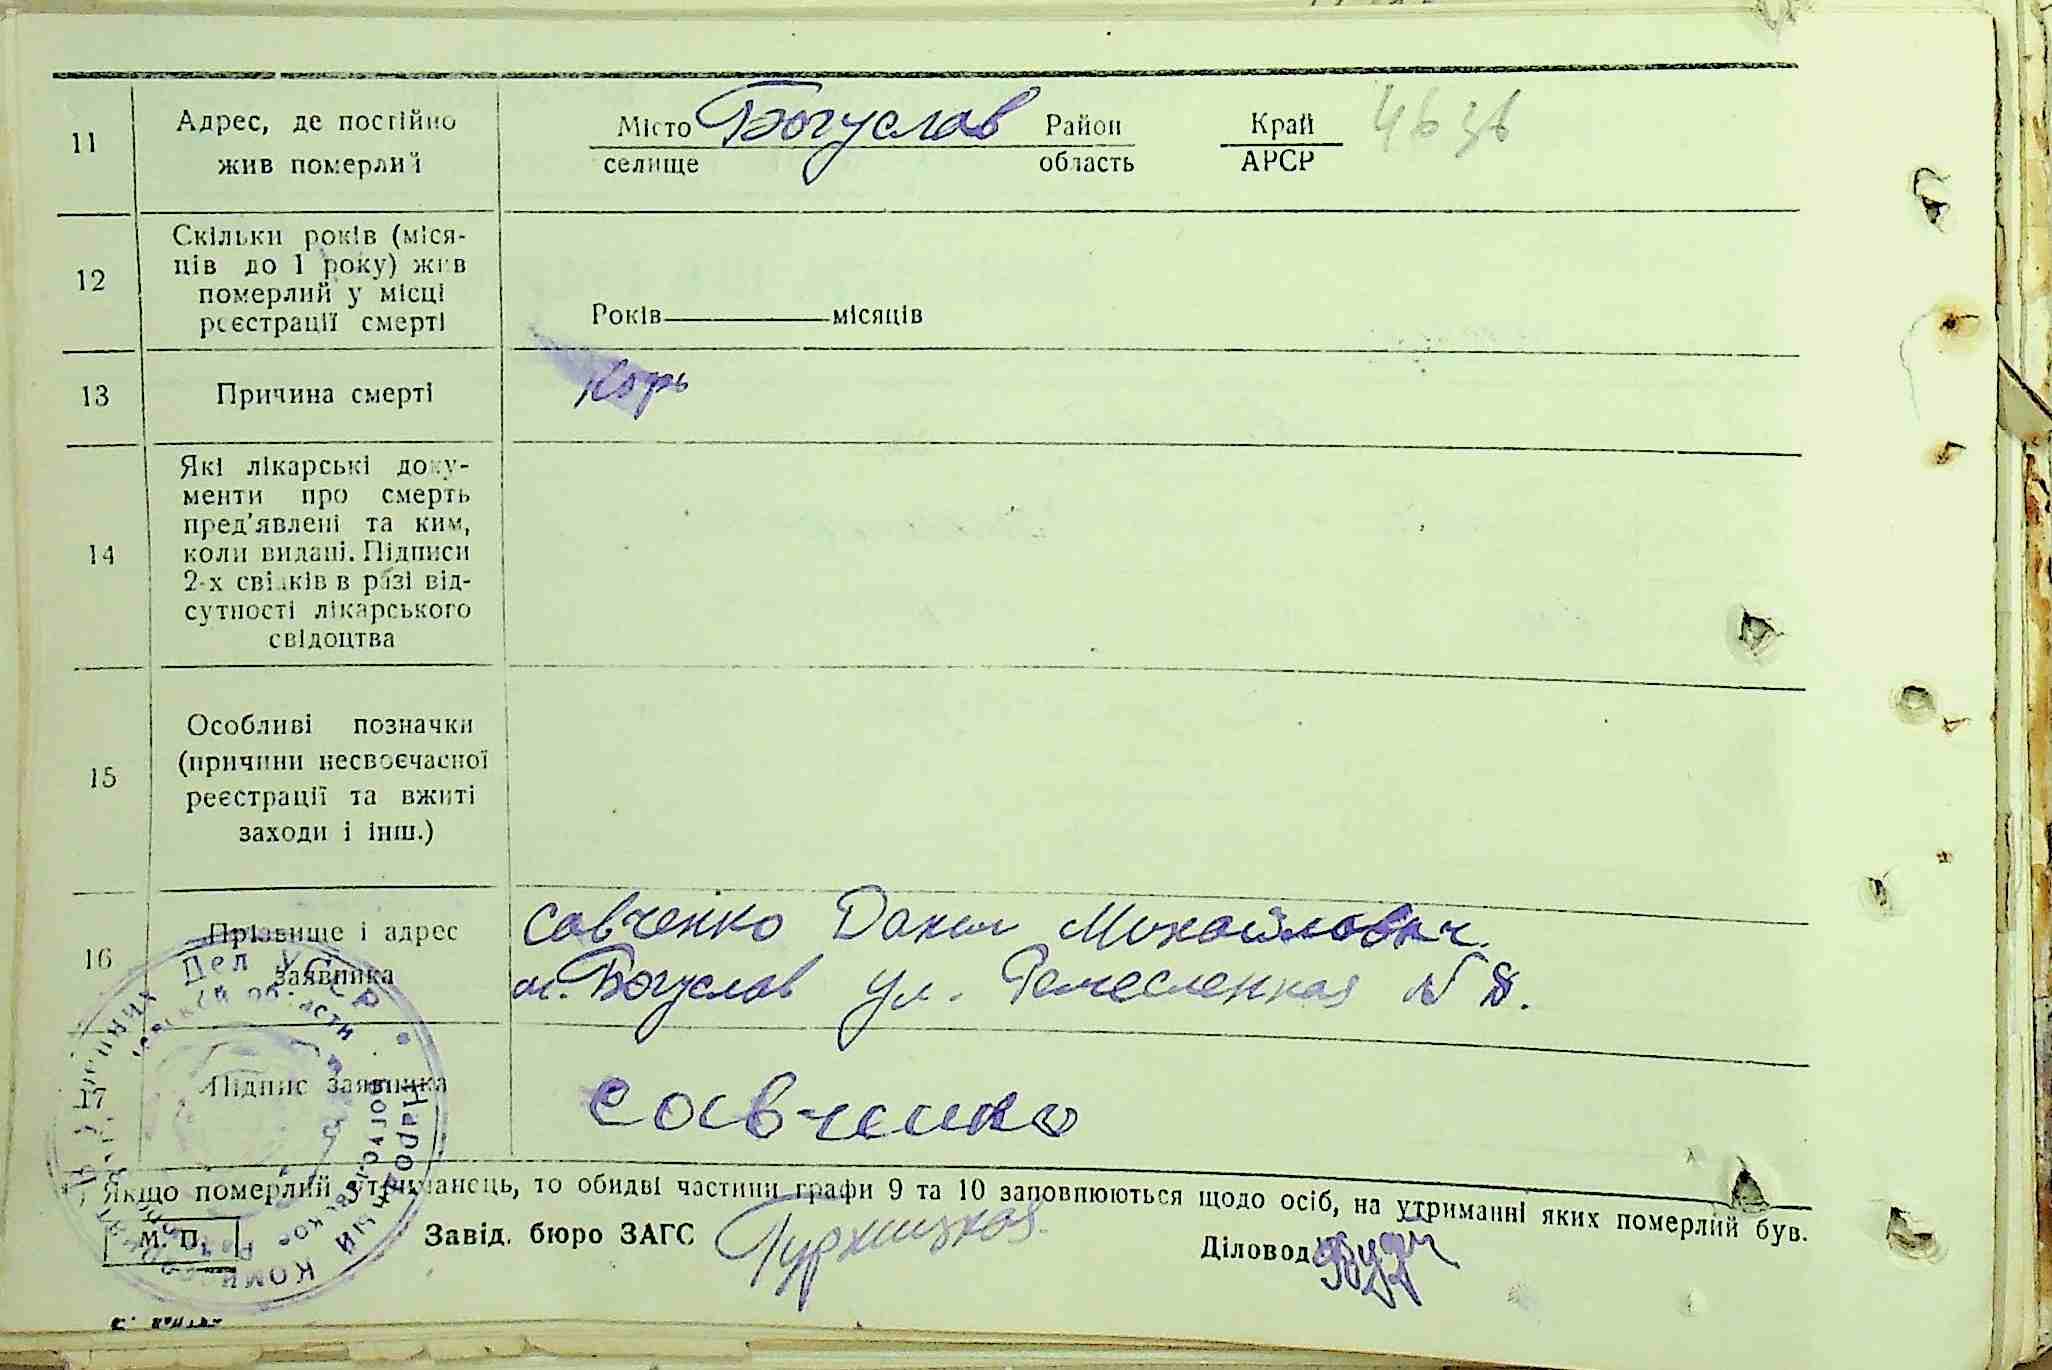 11
Адрес, де постійно
жив померлий
Місто Богуслав Район Край
селище область АРСР
12
Скільки років (міся-
ців до 1 року) жив
померлий у місці
реєстрації смерті
Років місяців
13
Причина смерті
Корь
14
Які лікарські доку-
менти про смерть
пред'явлені та ким,
коли видані. Підписи
2-х свідків в разі від-
сутності лікарського
свідоцтва
15
Особливі позначки
(причини несвоєчасної
реєстрації та вжиті
заходи і інш.)
16
Прізвище і адрес
заявника
Савченко Данил Михайлович.
м. Богуслав ул. Ремесленная №
17
Підпис заявника
Савченко
Якщо померлий утриманець, то обидві частини графи 9 та 10 заповнюються щодо осіб, на утриманні яких померлий був.
М. П.
Завід. бюро ЗАГС
Діловод
Народный Комиссариат Внутренних Дел УССР